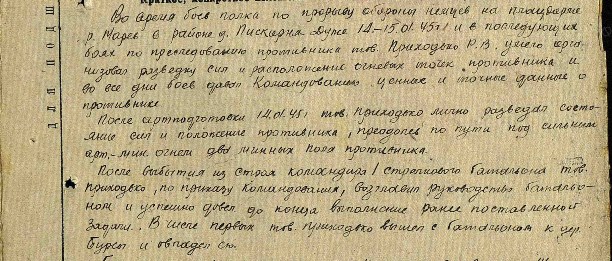 Во время боев полка по прорыву обороны немцев на плацдарме
р. Нарев в районе д. Дупе 14-15.01.45 г. и в последующих
боях по преследованию противника тов. Приходько умело орга-
низовал разведку сил и расположение огневых точек противника и
во все дни боев давал командованию ценные и точные данные о
противнике.
После артподготовки 14.01.45 г. тов. Приходько лично разведал состо-
яние сил и положение противника, преодолев по пути под сильным
арт.-мин. огнем два минных поля противника.
После выбытия из строя командира 1 стрелкового батальона тов.
Приходько, по приказу командования, возглавил руководство батальо-
ном и успешно довел до конца выполнение ранее поставленной
задачи. В числе первых тов. Приходько вышел с батальоном к дер.
и овладел ею.
для подш